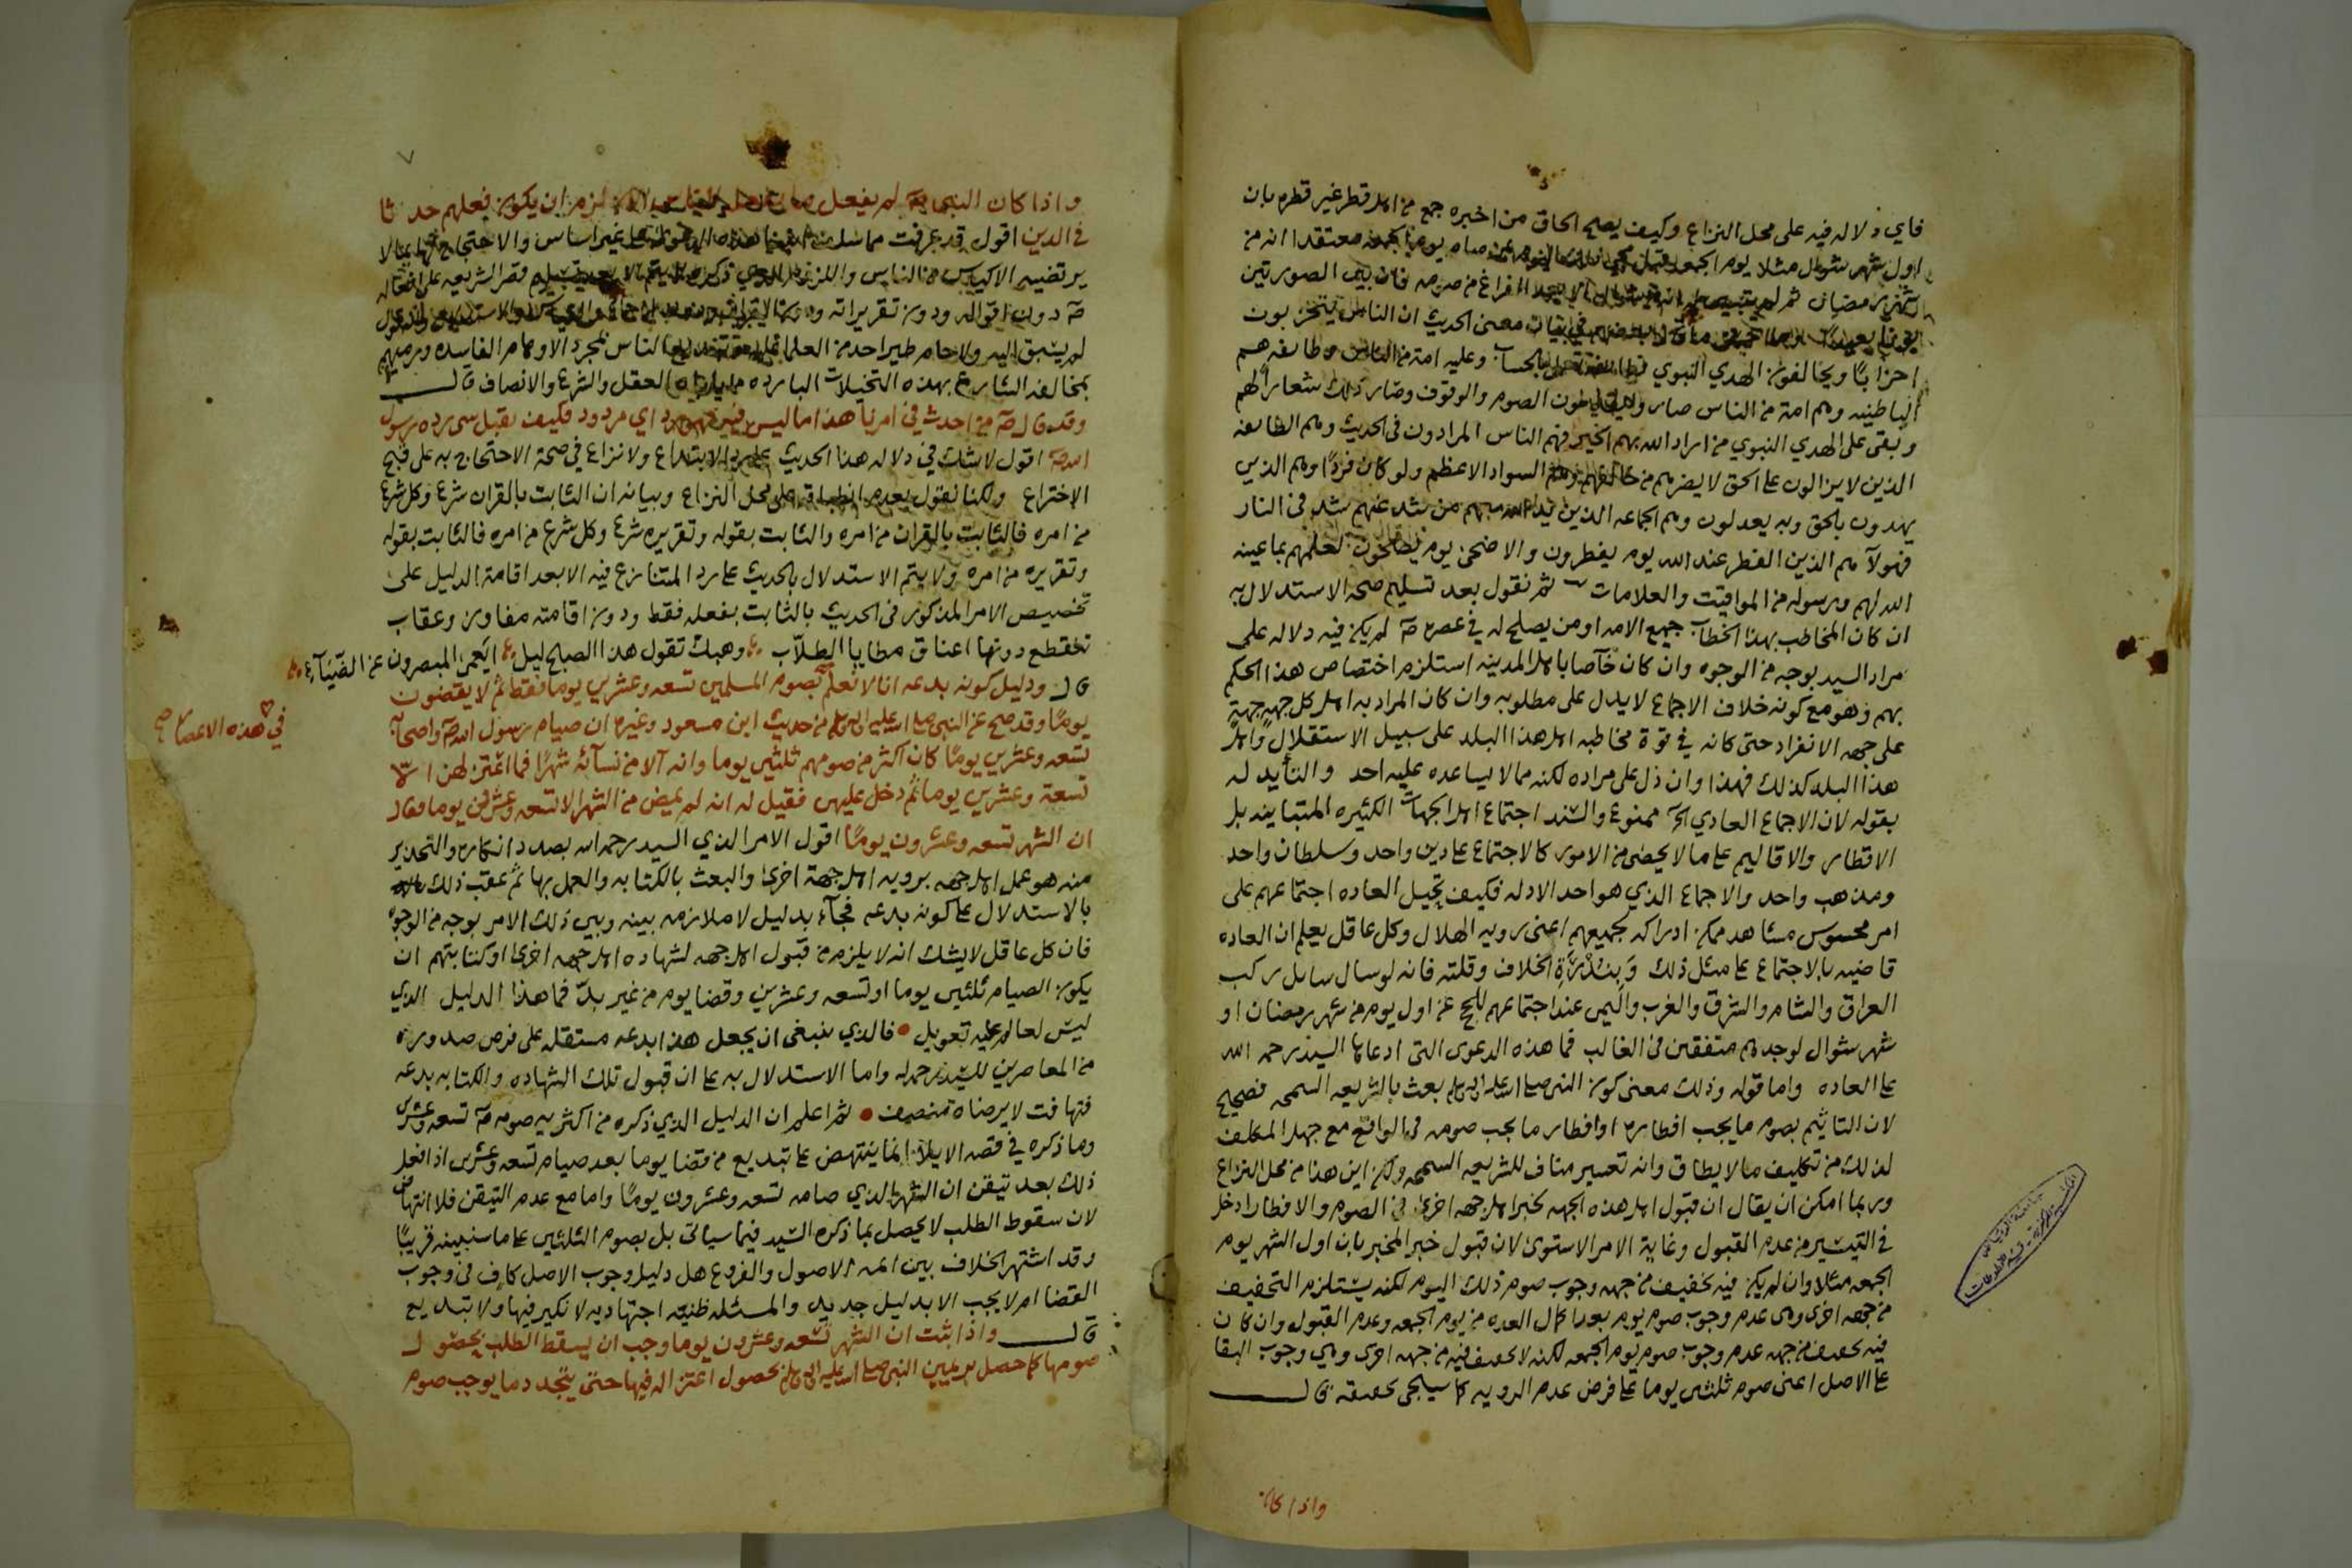 فاي دلاله فيه على محل النزاع وكيف يصح الحاق من اخبره جمع من اهل قطر غير قطره بان
اول شهر شوال مثلا يوم الجمعه صام يوم الجمعه معتقدا انه من
شهر رمضان ثم لم الفراغ من صومه فان بين الصورتين
في اثبات معنى الحديث ان الناس يتحزبون
احزابًا ويخالفون الهدي النبوي بالحساب وعليه امة من الناس وطائفه هم
الباطنيه وهم امة من الناس صاروا الصوم والوقوف وصار ذلك شعارا لهم
وبقى على الهدي النبوي من اراد الله بهم الخير فهم الناس المرادون في الحديث وهم الطايفه
الذين لا يزالون على الحق لا يضرهم من خالفهم وهم السواد الاعظم ولو كان فردًا وهم الذين
يهدون بالحق وبه يعدلون وهم الجماعه الذين يد الله معهم من شذ عنهم شذ في النار
فهولآ هم الذين الفطر عند الله يوم يفطرون والاضحى يوم يضحون لعلمهم بما عينه
الله لهم ورسوله من المواقيت والعلامات ثم نقول بعد تسليم صحه الاستدلال به
ان كان المخاطب بهذا الخطاب جميع الامه او من يصلح له في عصره صم لم يكن فيه دلاله على
مراد السيد بوجه من الوجوه وان كان خآصا باهل المدينه استلزم اختصاص هذا الحكم
بهم وهو مع كونه خلاف الاجماع لا يدل على مطلوبه وان كان المراد به اهل كل جهةٍ جهةٍ
على جهه الانفراد حتى كانه في قوة مخاطبه اهل هذا البلد على سبيل الاستقلال واهل
هذا البلد كذلك فهذا وان دل على مراده لكنه مما لا يساعده عليه احد والتأيد له
بقوله لان الاجماع العادي الخ ممنوع والسند اجتماع اهل الجهات الكثيره المتباينه بل
الاقطار والاقاليم على ما لا يحصى من الامور كالاجتماع على دين واحد وسلطان واحد
ومذهب واحد والاجماع الذي هو احد الادله فكيف تحيل العاده اجتماعهم على
امر محسوس مشاهد ممكن ادراكه لجميعهم اعنى رويه الهلال وكل عاقل يعلم ان العاده
قاضيه بالاجتماع على مثل ذلك وبندرة الخلاف وقلته فانه لو سال سايل ركب
العراق والشام والشرق والغرب واليمن عند اجتماعهم للحج عن اول يوم من شهر رمضان او
شهر شوال لوجدهم متفقين في الغالب فما هذه الدعوى التى ادعاها السيد رحمه الله
على العاده واما قوله وذلك معنى كون النبي صلى الله عليه واله وسلم بعث بالشريعه السمحه فصحيح
لان التاثيم بصوم ما يجب افطاره او افطار ما يجب صومه في الواقع مع جهل المكلف
لذلك من تكليف ما لا يطاق وانه تعسير مناف للشريعه السمحه ولكن اين هذا من محل النزاع
وربما امكن ان يقال ان قبول اهل هذه الجهه لخبر اهل جهه اخرى في الصوم والافطار ادخل
في التيسير من عدم القبول وغاية الامر الاستوى لان قبول خبر المخبر بان اول الشهر يوم
الجمعه مثلا وان لم يكن فيه تخفيف من جهه وجوب صوم ذلك اليوم لكنه يستلزم التخفيف
من جهه اخرى وهى عدم وجوب صوم يوم بعد اكمال العده من يوم الجمعه وعدم القبول وان كان
فيه تخفيف من جهه عدم وجوب صوم يوم الجمعه لكنه لا تخفيف فيه من جهه اخرى وهي وجوب البقا
على الاصل اعنى صوم ثلثين يوما على فرض عدم الرويه كما سيجى تحقيقه قال
واذا كان
٧
واذا كان النبي صم لم يفعل لزم ان يكون فعلهم حدثا
في الدين اقول قد عرفت مما غير اساس والاحتجاج بما لا
يرتضيه الاكياس من الناس قصر الشريعه على افعاله
صم دون اقواله ودون تقريراته
لم يسبق اليه ولا حام طير احد من العلما الناس لمجرد الاوهام الفاسده ورميهم
بمخالفه الشارع بهذه التخيلات البارده العقل والشرع والانصاف قال
وقد قال صم من احدث في امرنا هذا ما ليس فيه فهو رد اي مردود فكيف نقبل شى رده رسول
الله صم اقول لا شك في دلاله هذا الحديث على رد الابتداع ولا نزاع في صحة الاحتجاج به على قبح
الاختراع ولكنا نقول بعدم انطباقه على محل النزاع وبيانه ان الثابت بالقران شرع وكل شرع
من امره فالثابت بالقران من امره والثابت بقوله وتقريره شرع وكل شرع من امره فالثابت بقوله
وتقريره من امره ولا يتم الاستدلال بالحديث على رد المتنازع فيه الا بعد اقامة الدليل على
تخصيص الامر المذكور في الحديث بالثابت بفعله فقط ودون اقامته مفاوز وعقاب
تنقطع دونها اعناق مطايا الطلّاب وهبك تقول هذا الصبح ليل ايعمى المبصرون عن الضّيآء
قال ودليل كونه بدعه انا لا نعلم بصوم المسلمين تسعه وعشرين يوما فقط ثم لا يقضون
في هذه الاعصار صح
يومًا وقد صح عن النبي صلى الله عليه واله وسلم من حديث ابن مسعود وغيره ان صيام رسول الله صم واصحابه
تسعه وعشرين يومًا كان اكثر من صومهم ثلثين يوما وانه آلا من نسآئه شهرًا فما اعتزلهن الا
تسعة وعشرين يوما ثم دخل عليهن فقيل له انه لم يمض من الشهر الا تسعه وعشرون يوما فقال
ان الشهر تسعه وعشرون يومًا اقول الامر الذي السيد رحمه الله بصدد انكاره والتحذير
منه هو عمل اهل جهه برويه اهل جهة اخرى والبعث بالكتابه والعمل بها ثم عقب ذلك
بالاستدلال على كونه بدعه فجآء بدليل لا ملازمه بينه وبين ذلك الامر بوجه من الوجوه
فان كل عاقل لا يشك انه لا يلزم من قبول اهل جهه لشهاده اهل جهه اخرى او كتابتهم ان
يكون الصيام ثلثين يوما او تسعه وعشرين وقضا يوم من غير بدّ فما هذا الدليل الذي
ليس لعالم عليه تعويل فالذي ينبغى ان يجعل هذا بدعه مستقله على فرض صدوره
من المعاصرين للسيد رحمه الله واما الاستدلال به على ان قبول تلك الشهاده والكتابه بدعه
فتهافت لا يرضاه منصف ثم اعلم ان الدليل الذي ذكره من اكثريه صومه صم تسعه وعشرين
وما ذكره في قصه الايلآ انما ينتهض على تبديع من قضا يوما بعد صيام تسعه وعشرين اذا فعل
ذلك بعد تيقن ان الشهر الذي صامه تسعه وعشرون يومًا واما مع عدم التيقن فلا انتهاض
لان سقوط الطلب لا يحصل بما ذكره السيد فيما سيأتى بل بصوم الثلثين على ما سنبينه قريبًا
وقد اشتهر الخلاف بين ائمه الاصول والفروع هل دليل وجوب الاصل كاف في وجوب
القضا ام لا يجب الا بدليل جديد والمسئله ظنيه اجتهاديه لا نكير فيها ولا تبديع
قال واذا ثبت ان الشهر تسعه وعشرون يوما وجب ان يسقط الطلب بحصول
صومها كما حصل بر يمين النبي صلى الله عليه واله وسلم بحصول اعتزاله فيها حتى يتجدد ما يوجب صوم